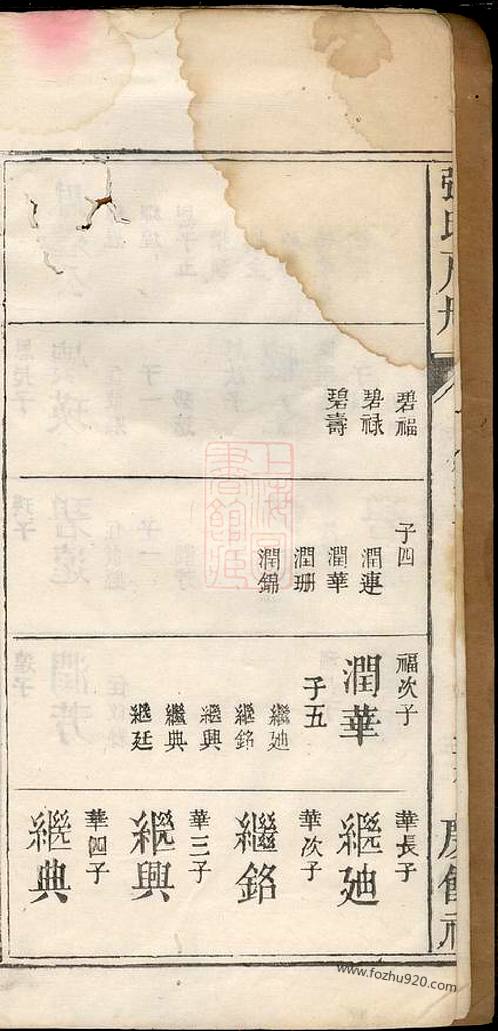 張氏
碧福
碧祿
碧壽
子四
潤連
潤華
潤珊
潤錦
福次子
潤華
子五
繼廸
繼銘
繼興
繼典
繼廷
華長子
繼廸
華次子
繼銘
華三子
繼興
華四子
繼典
上海
書館
www.fozhu920.com